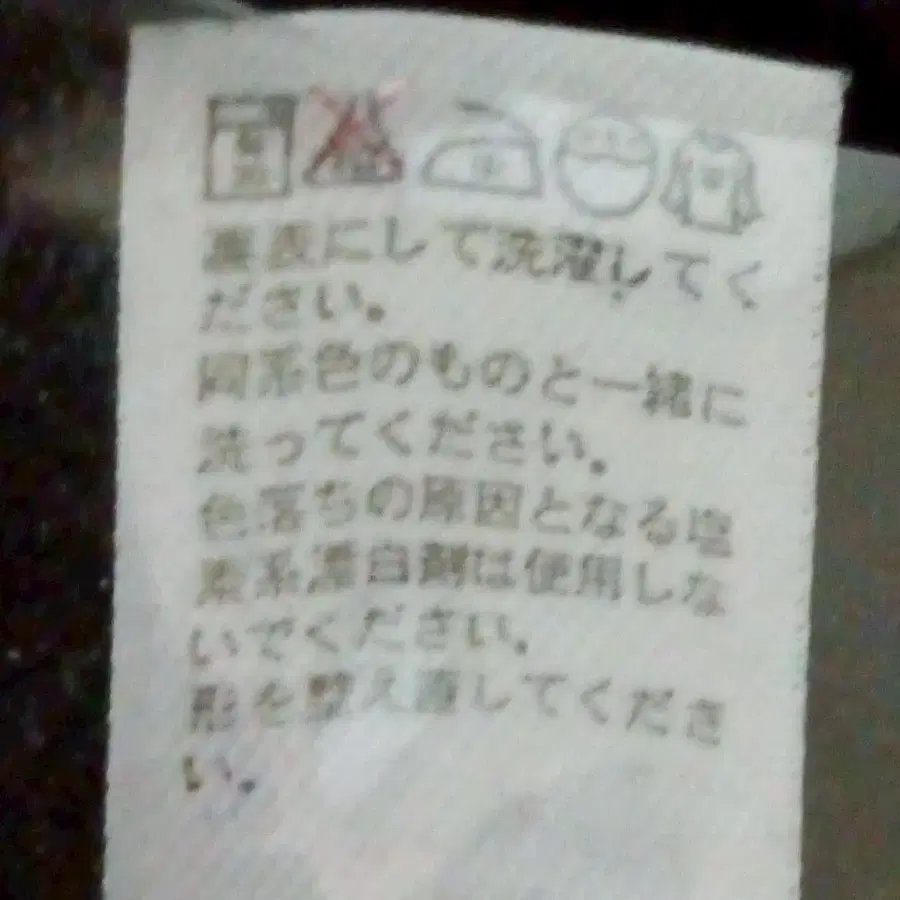 裏表にして洗濯してく
ださい。
同系色のものと一緒に
洗ってください。
色落ちの原因となる塩
素系漂白剤は使用しな
いでください。
形を整え直してくださ
い。